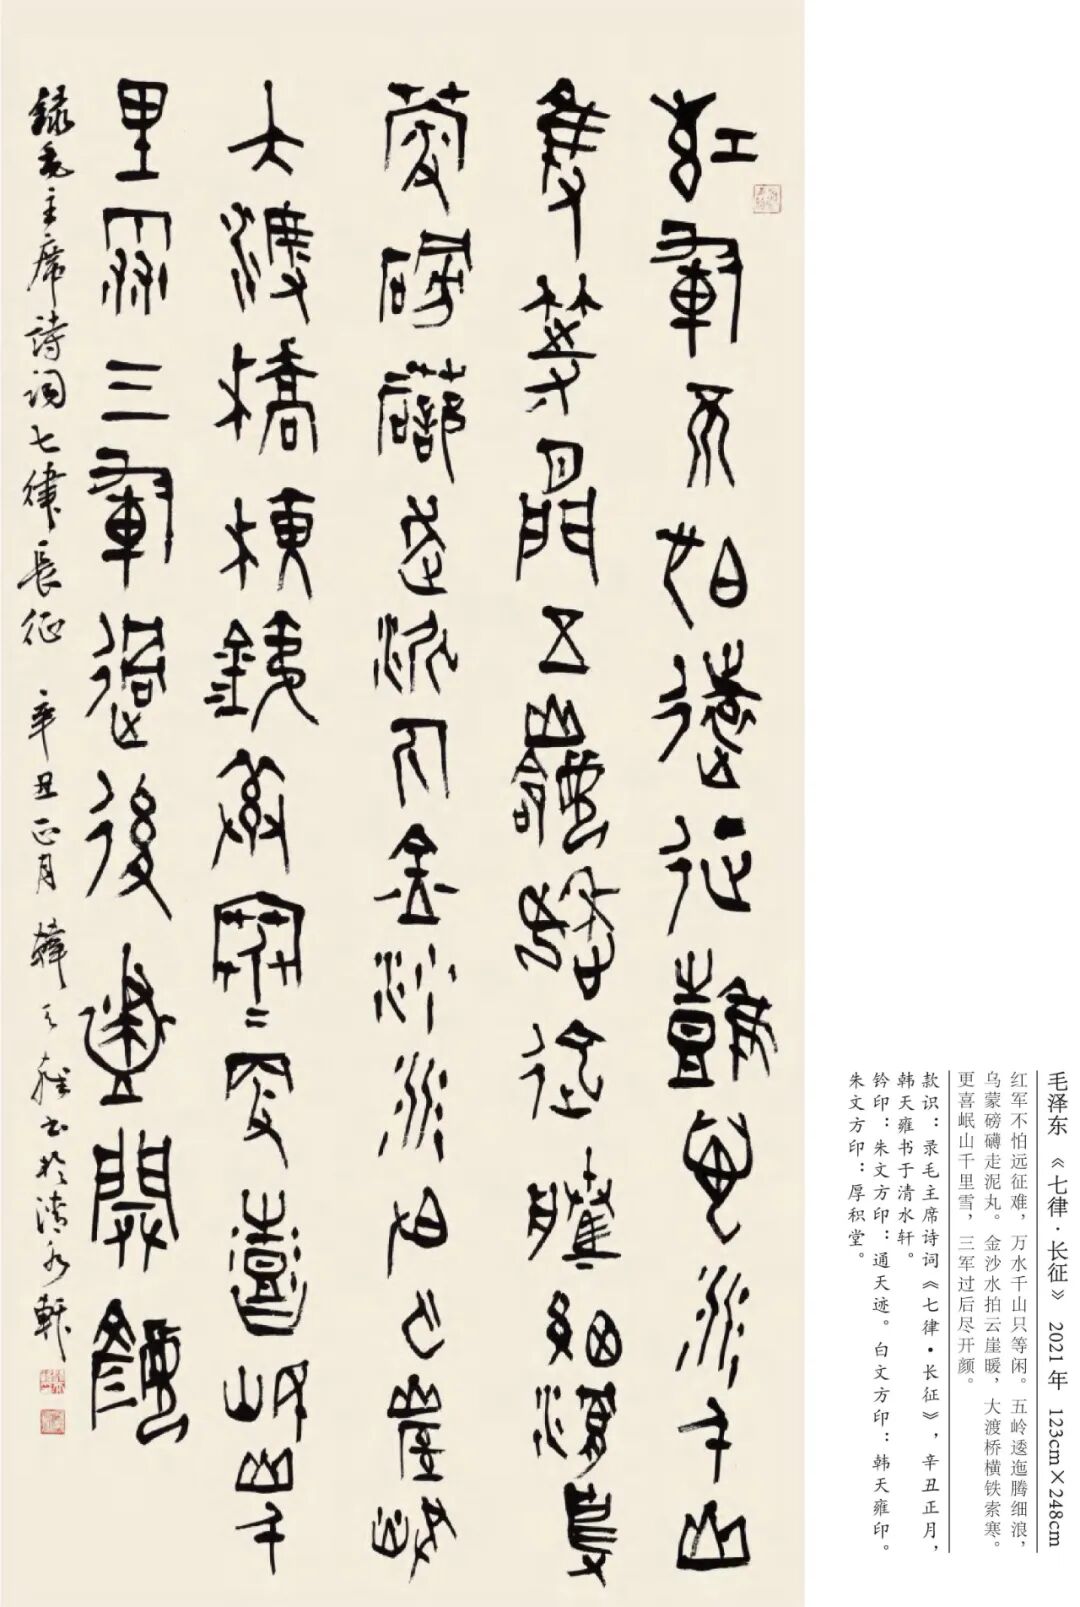 紅軍不怕遠征難萬水千山
隻等閒五嶺逶迤騰細浪烏
蒙磅礴走泥丸金沙水拍雲崖暖
大渡橋橫鐵索寒更喜岷山千
里雪三軍過後盡開顏
錄毛主席詩詞七律長征 辛丑正月韓天雍書於清水軒
毛泽东 《七律·长征》 2021年 123cm×248cm
红军不怕远征难，万水千山只等闲。五岭逶迤腾细浪，
乌蒙磅礴走泥丸。金沙水拍云崖暖，大渡桥横铁索寒。
更喜岷山千里雪，三军过后尽开颜。
款识：录毛主席诗词《七律·长征》，辛丑正月，
韩天雍书于清水轩。
钤印：朱文方印：通天迹。白文方印：韩天雍印。
朱文方印：厚积堂。